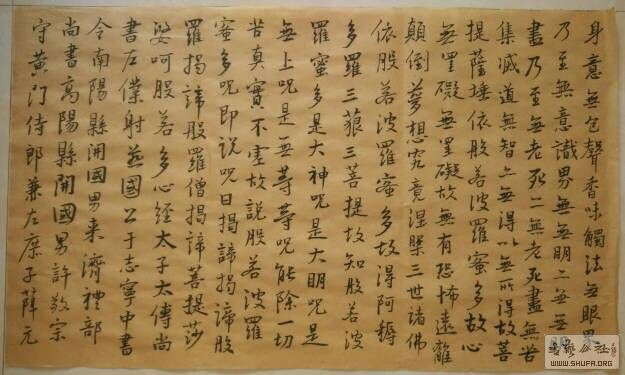 身意無色聲香味觸法無眼界
乃至無意識界無無明亦無無
盡乃至無老死亦無老死盡無苦
集滅道無智亦無得以無所得故菩
提薩埵依般若波羅蜜多故心
無罣礙無罣礙故無有恐怖遠離
顛倒夢想究竟涅槃三世諸佛
依般若波羅蜜多故得阿耨
多羅三藐三菩提故知般若波
羅蜜多是大神呪是大明呪是
無上呪是無等等呪能除一切
苦真實不虛故說般若波羅
蜜多呪即說呪曰揭諦揭諦般
羅揭諦般羅僧揭諦菩提莎
婆呵般若多心經太子太傅尚
書左僕射燕國公于志寧中書
令南陽縣開國男來濟禮部
尚書高陽縣開國男許敬宗
守黃門侍郎兼左庶子薛元
WWW.SHUFA.ORG